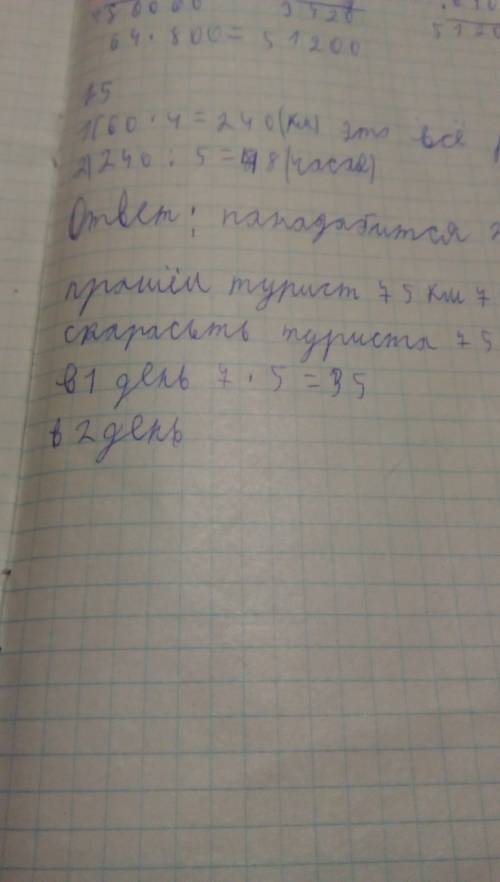 64 · 800 = 51200
75
1) 60 · 4 = 240 (км) это всё
2) 240 : 5 = 48 (часов)
Ответ: панадабится
прашёл турист 75 км 7
скарасьть туриста 75
в 1 день 7 · 5 = 35
в 2 день